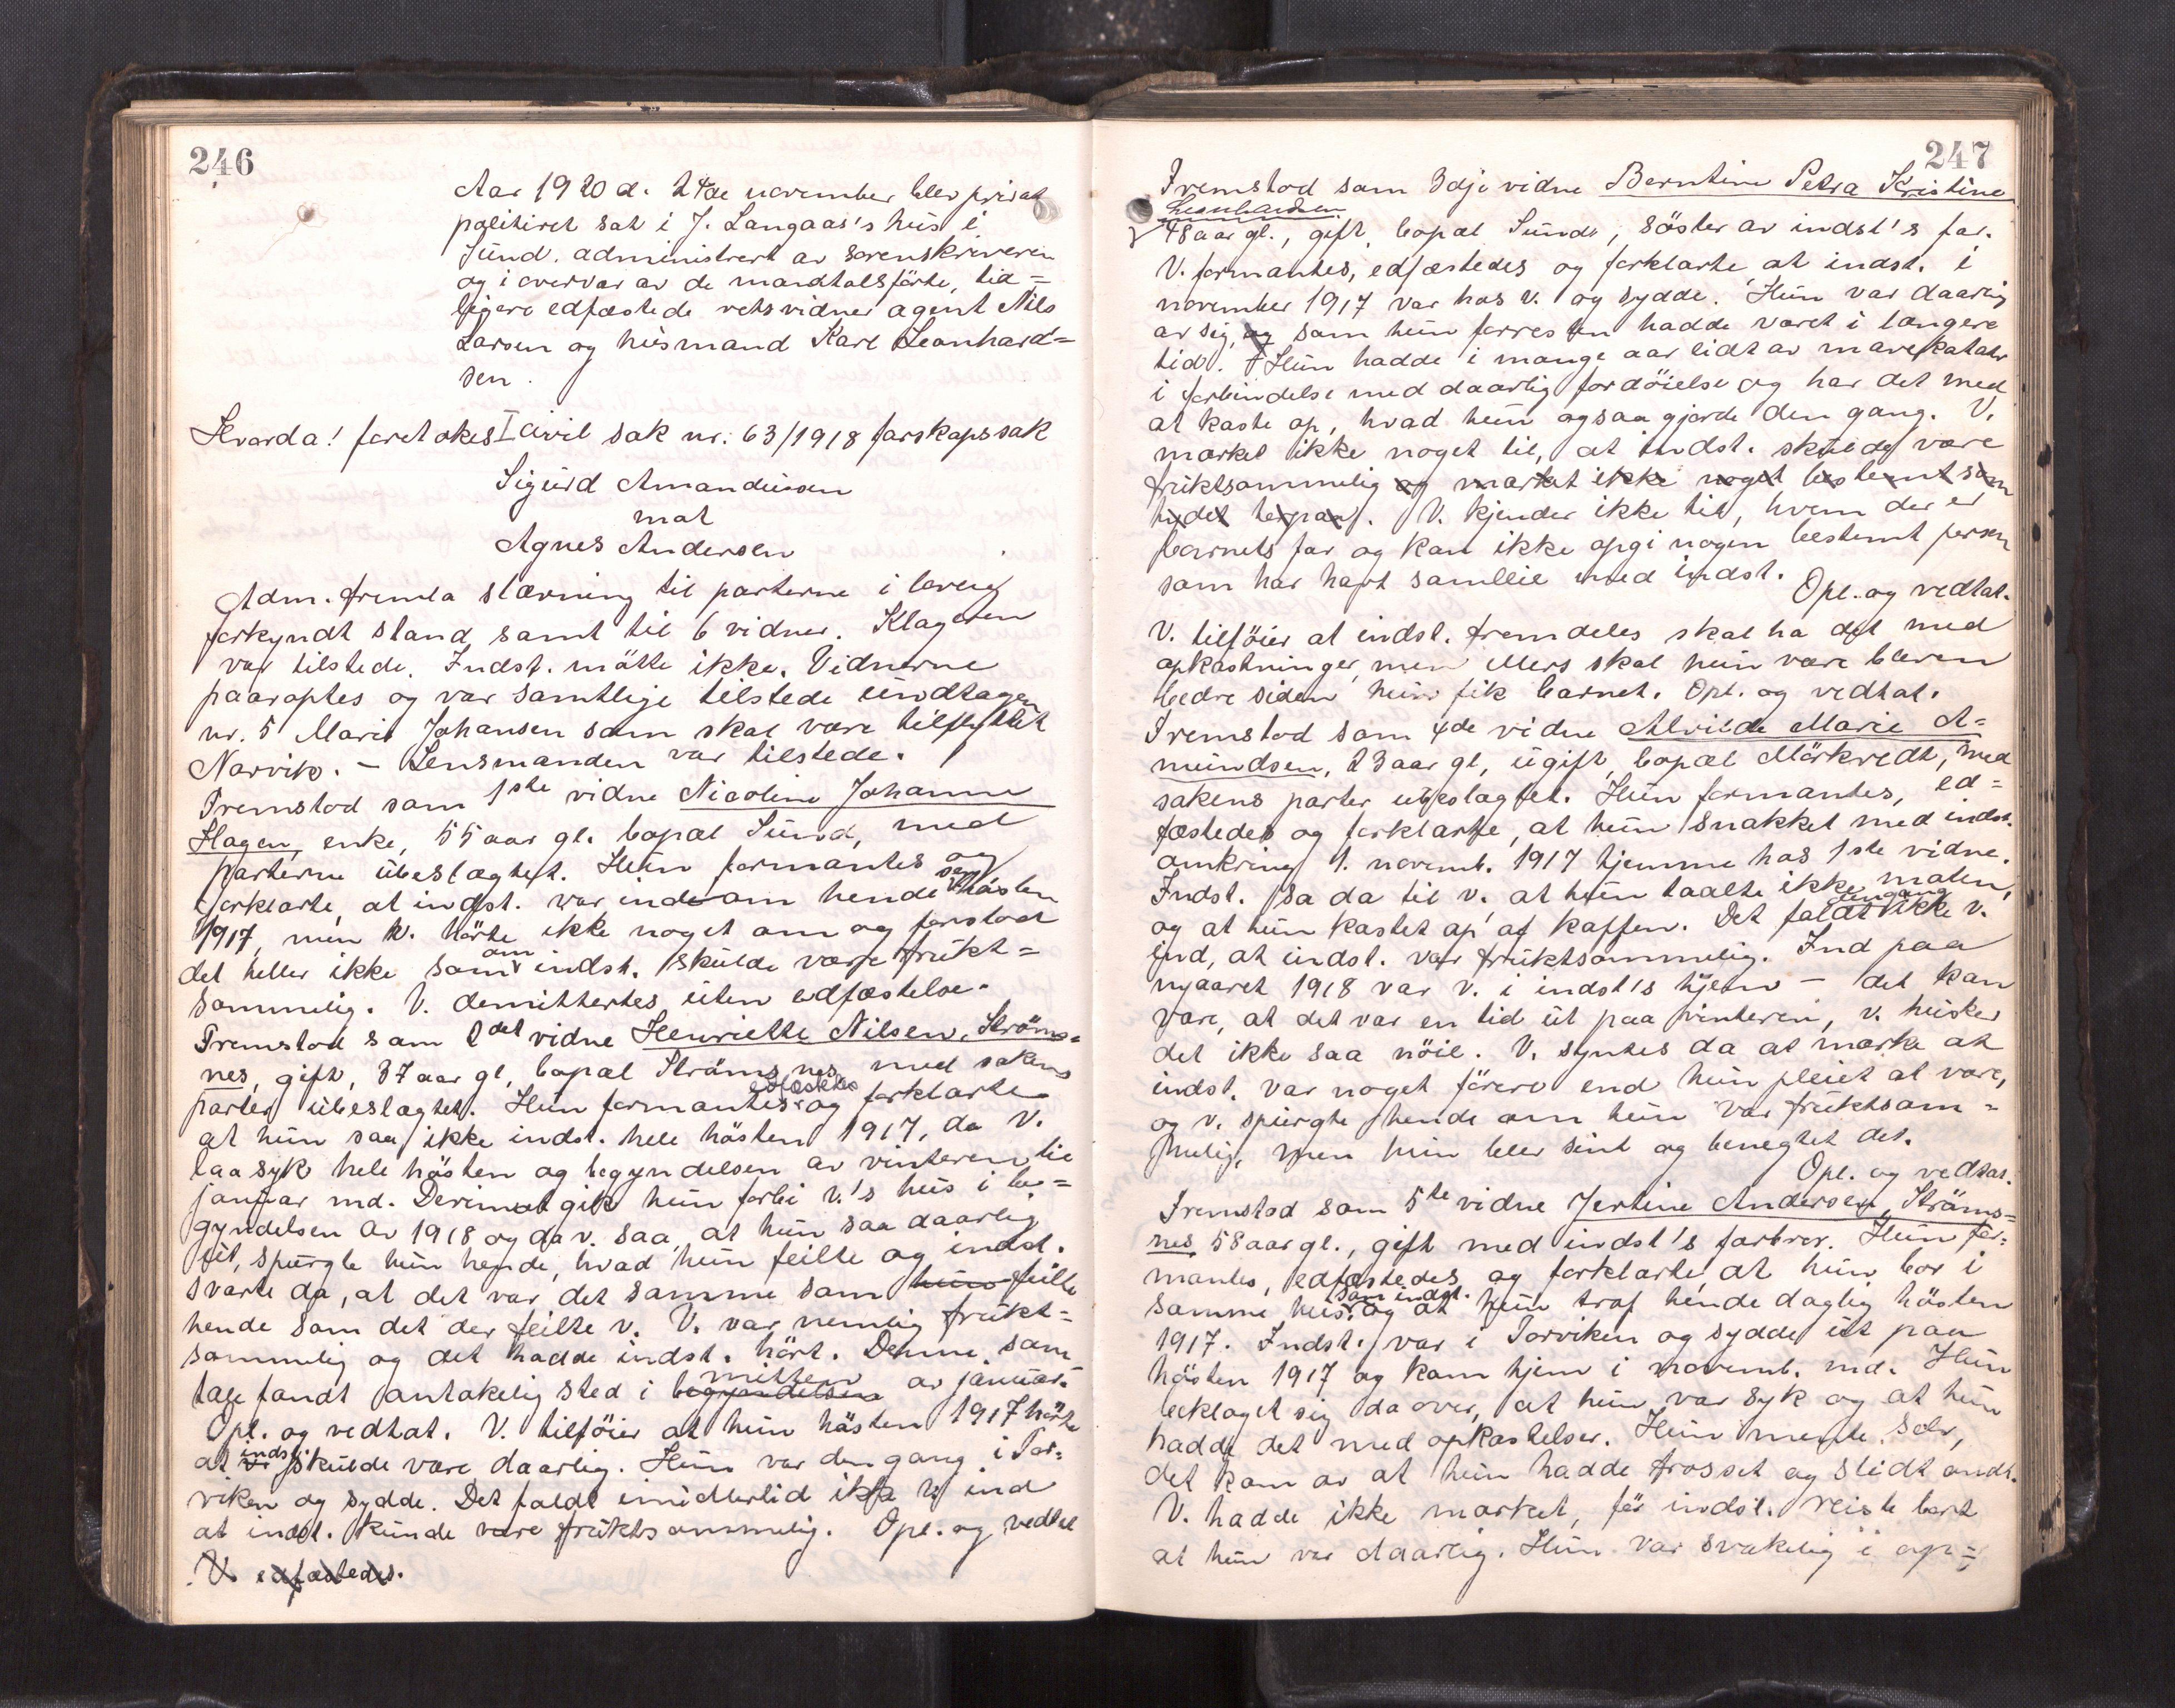 246
Aar 1920 d. 24de november blev privat
politiret sat i J. Langaas's hus i
Sund. administrert av sorenskriveren
og i overvær av de mandtalsførte, tid=
ligere edfæstede retsvidner agent Nils
Larsen og husmand Karl Leonhard=
sen.
Hvorda! foretokes I civil sak nr. 63/1918 farskapssak
Sigurd Amandusen
mot
Agnes Andersen
Adm. fremla stævning til parterne i lovlig
forkyndt stand samt til 6 vidner. Klageren
var tilstede. Indst. møtte ikke. Vidnerne
paaroptes og var samtlige tilstede undtagen
nr. 5 Marie Johansen som skal være tilflyttet
Narvik. – Lensmanden var tilstede.
Fremstod som 1ste vidne Nicoline Johanne
Hagen, enke, 55 aar gl. bopæl Sund, med
parterne ubeslægtet. Hun formantes og
forklarte, at indst. var inde om hende sen høsten
1917, men v. hørte ikke noget om og forstod
det heller ikke som om indst. skulde være frukt=
sommelig. V. demittertes uten edfæstelse.
Fremstod som 2det vidne Henriette Nilsen, Strøms=
nes, gift, 37 aar gl, bopæl Strømsnes, med sakens
parter ubeslægtet. Hun formantes edfæstedes og forklarte
at hun saa ikke indst. hele høsten 1917, da v.
laa syk hele høsten og begyndelsen av vinteren til
januar md. Derimot gik hun forbi v.'s hus i be=
gyndelsen av 1918 og da v. saa, at hun saa daarlig
ut, spurgte hun hende, hvad hun feilte og indst.
svarte da, at det var det samme som hun feilte
hende som det der feilte v. V. var nemlig frukt=
sommelig og det hadde indst. hørt. Denne sam
tale fandt antakelig sted i begyndelsen mitten av januar.
Opl. og vedtat. V. tilføier at hun høsten 1917 hørte
at v. indst. skulde være daarlig. Hun var den gang i Tor=
viken og sydde. Det faldt imidlertid ikke v. ind
at indst. kunde være fruktsommelig. Opl. og vedtat
V. edfæstedes.
247
Fremstod som 3dje vidne Berntine Petra Kristine
Leonhardsen
48 aar gl., gift, bopæl Sund, søster av indst's far.
V. formantes, edfæstedes og forklarte at indst. i
november 1917 var hos v. og sydde. Hun var daarlig
av sig, og som hun forresten hadde været i længere
tid. Hun hadde i mange aar lidt av mavekatarr
i forbindelse med daarlig fordøielse og har det med
at kaste op, hvad hun ogsaa gjorde den gang. V.
merket ikke noget til, at indst. skulde være
fruktsommelig og merket ikke noget bestemt som
tydet herpaa. V. kjender ikke til, hvem der er
barnets far og kan ikke opgi nogen bestemt person
som har havt samleie med indst.
Opl. og vedtat.
V. tilføier at indst. fremdeles skal ha det med
opkastninger, men ellers skal hun være bleven
bedre siden hun fik barnet. Opl. og vedtat.
Fremstod som 4de vidne Alvilde Marie A=
mundsen, 23 aar gl, ugift, bopæl Mørkvedt, med
sakens parter ubeslægtet. Hun formantes, ed=
fæstedes og forklarte, at hun snakket med indst.
omkring 1. novemb. 1917 hjemme hos 1ste vidne.
Indst. sa da til v. at hun taalte ikke maten,
og at hun kastet op af kaffen. Det faldt dengang ikke v.
ind, at indst. var fruktsommelig. Ind paa
nyaaret 1918 var v. i indst's hjem – det kan
være, at det var en tid ut paa vinteren, v. husker
det ikke saa nøie. V. syntes da at merke at
indst. var noget førere end hun pleiet at være,
og v. spurgte hende om hun var fruktsom=
melig, men hun blev sint og benegtet det.
Opl. og vedtat.
Fremstod som 5te vidne Jertine Andersen, Strøms=
nes 58 aar gl., gift med indst's farbror. Hun for=
mantes, edfæstedes og forklarte at hun bor i
samme hus som indst. og at hun traf hende daglig høsten
1917. Indst. var i Torviken og sydde ut paa
høsten 1917 og kom hjem i novemb. md. Hun
beklaget sig da over, at hun var syk og at hun
hadde det med opkastelser. Hun mente selv,
det kom av at hun hadde frosset og slidt ondt.
V. hadde ikke merket, før indst. reiste bort
at hun var daarlig. Hun var svakelig i op=